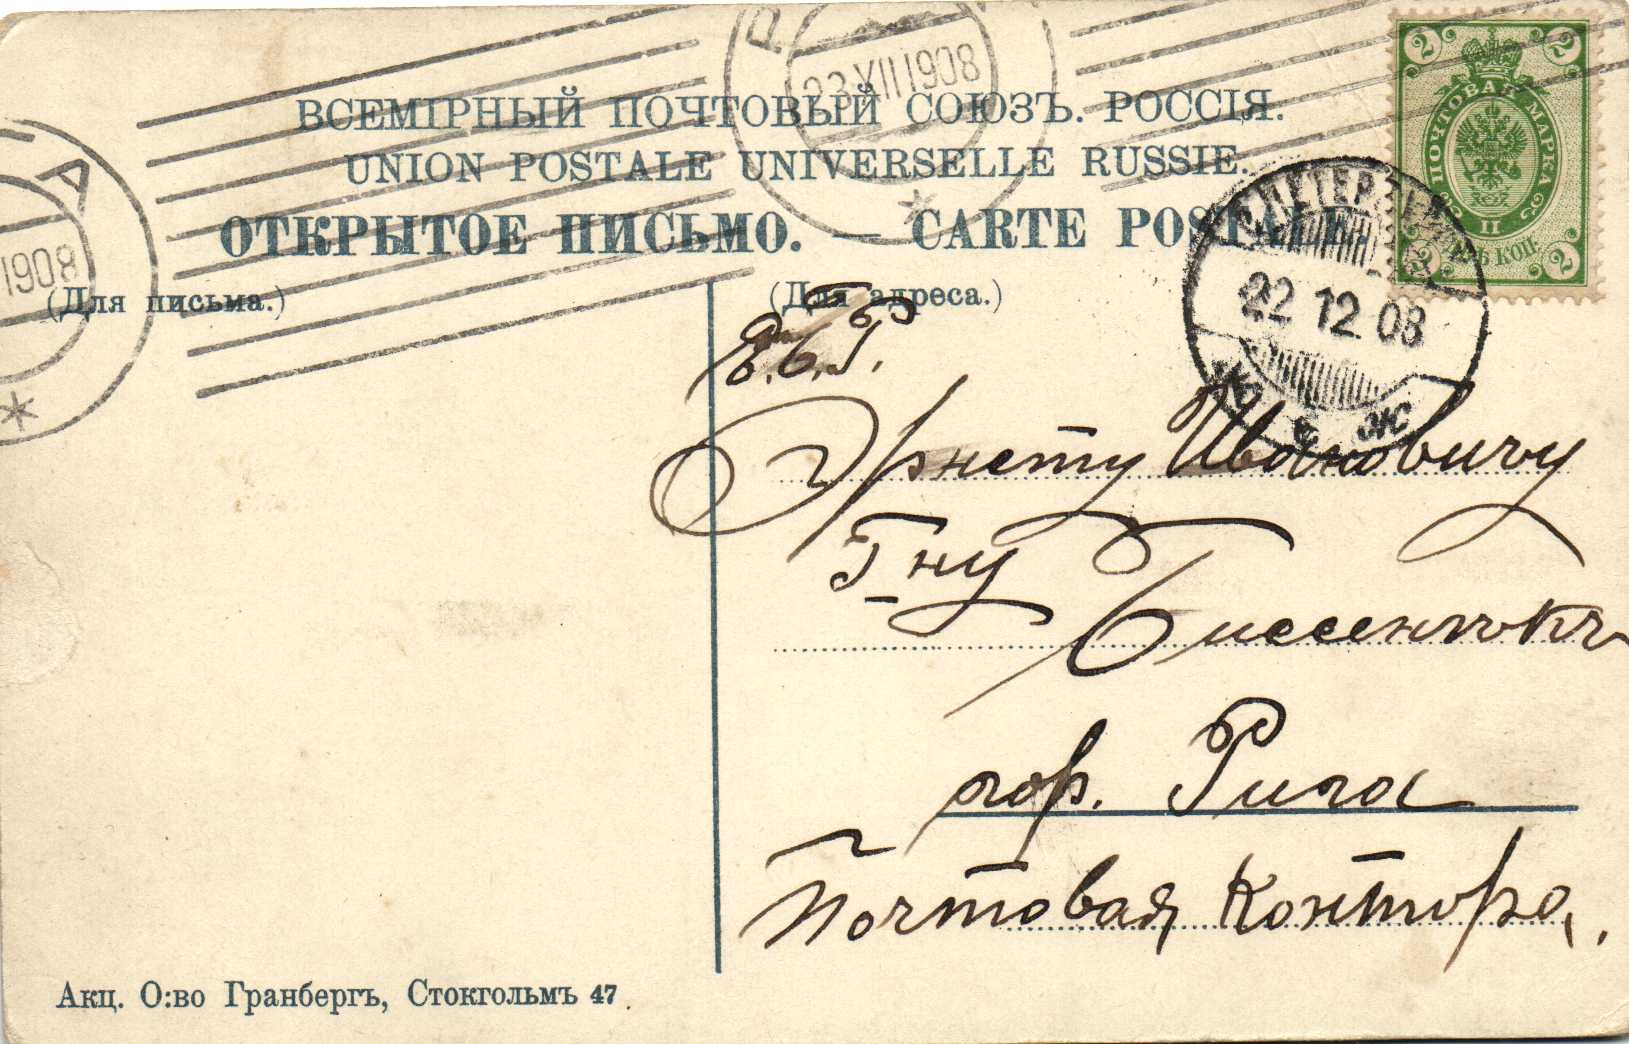 23 XII 1908
ВСЕМІРНЫЙ ПОЧТОВЫЙ СОЮЗЪ. РОССІЯ.
UNION POSTALE UNIVERSELLE RUSSIE.
ОТКРЫТОЕ ПИСЬМО. — CARTE POSTALE
2 2
ПОЧТОВАЯ МАРКА
II
2 2
22 12 08
А
1908
(Для письма.)
(Для адреса.)
Е.В.Б.
Эрнсту Ивановичу
Г-ну
гор. Рига
Почтовая Контора.
Акц. О:во Гранбергъ, Стокгольмъ 47